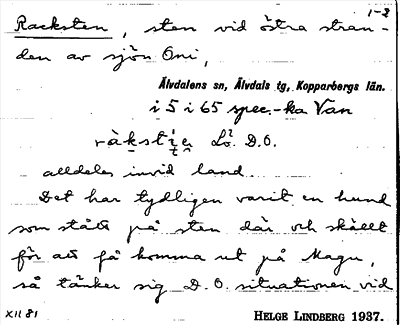 1-2
Racksten, sten vid östra stran-
den av sjön Oni,
Älvdalens sn, Älvdals tg, Kopparbergs län.
i 5 i 65 spec.-ka Van
D.O.
alldeles invid land.
Det har tydligen varit en hund
som stått på sten där och skällt
för att få komma ut på Kagu,
så tänker sig D.O. situationen vid
XII 81
HELGE LINDBERG 1937.